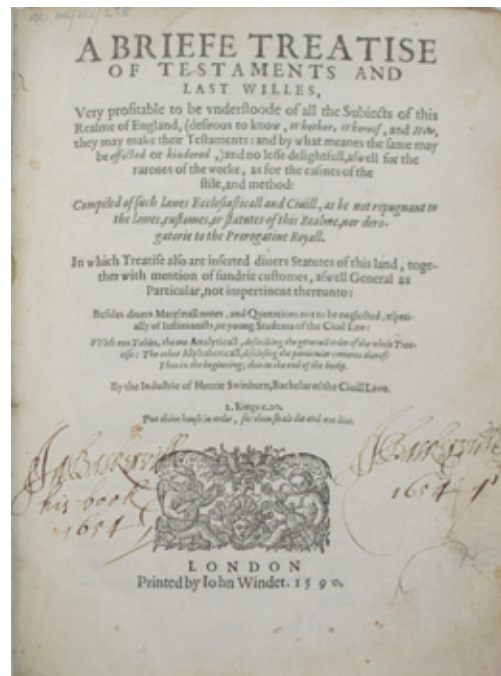 A BRIEFE TREATISE
OF TESTAMENTS AND
LAST WILLES,
Very profitable to be vnderstoode of all the Subiects of this
Realme of England, (desirous to know, Whether, Whereof, and How,
they may make their Testaments: and by what meanes the same may
be effected or hindered,) and no lesse delightfull, aswell for the
rarenes of the worke, as for the easines of the
stile, and method:
Compiled of such lawes Ecclesiasticall and Ciuill, as be not repugnant to
the lawes, customes, or statutes of this Realme, nor dero-
gatorie to the Prerogatiue Royall.
In which Treatise also are inserted diuers Statutes of this land, toge-
ther with mention of sundrie customes, aswell General as
Particular, not impertinent thereunto:
Besides diuers Marginall notes, and Quotations not to be neglected, especi-
ally of Iustinianists, or young Students of the Ciuil Law:
With two Tables, the one Analyticall, describing the generall order of the whole Trea-
tise: The other Alphabeticall, disclosing the particular contents thereof:
That in the beginning; this in the end of the booke.
By the Industrie of Henrie Swinburn, Bachelar of the Ciuill Lawe.
2. Kings c. 20.
Put thine house in order, for thou shalt die and not liue.
Baskervill
his book
1654
Baskervill
1654
LONDON
Printed by Iohn Windet. 1590.